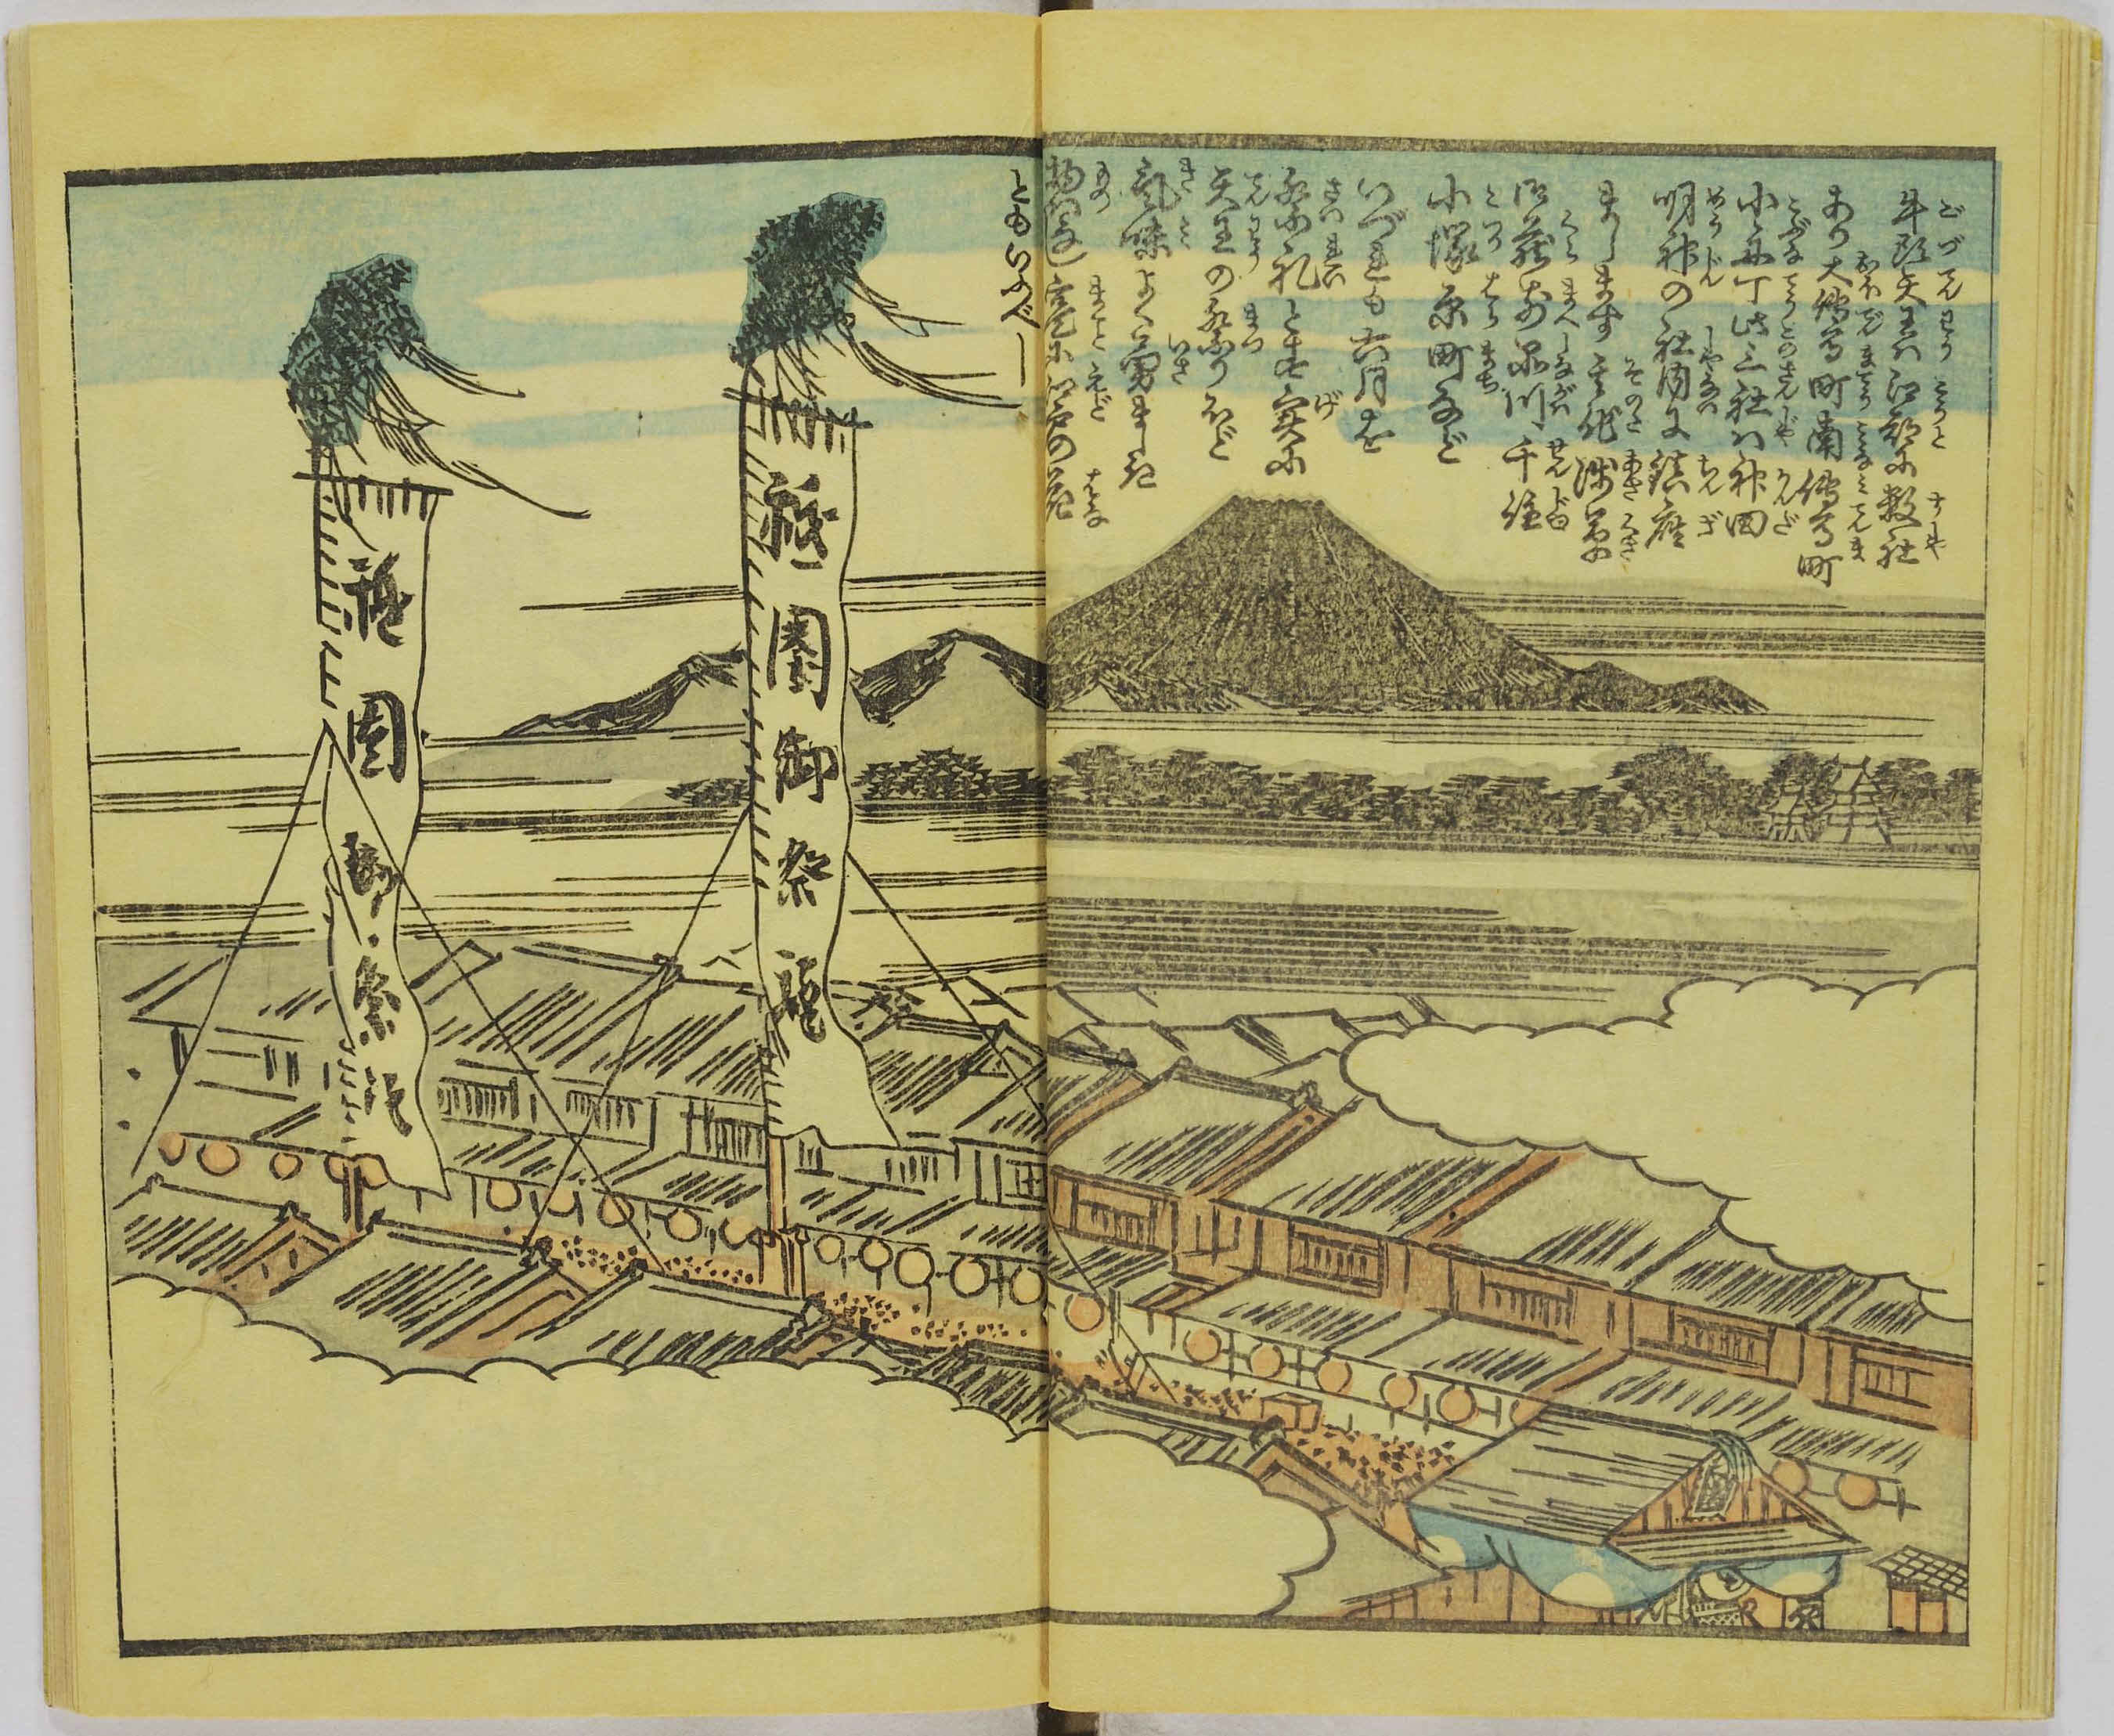 牛頭天王ハ江都に数社
あり大傳馬町南傳馬町
小舟丁此三社ハ神田
明神の社内に鎮座
まします其他浅草
御蔵前品川千住
小塚原町など
いづれも六月を
祭礼とす実に
天王の祭りほど
気味よく勇ましき
物なし寔に江戸の花
ともいふべし
祇園御祭禮
祇園御祭礼